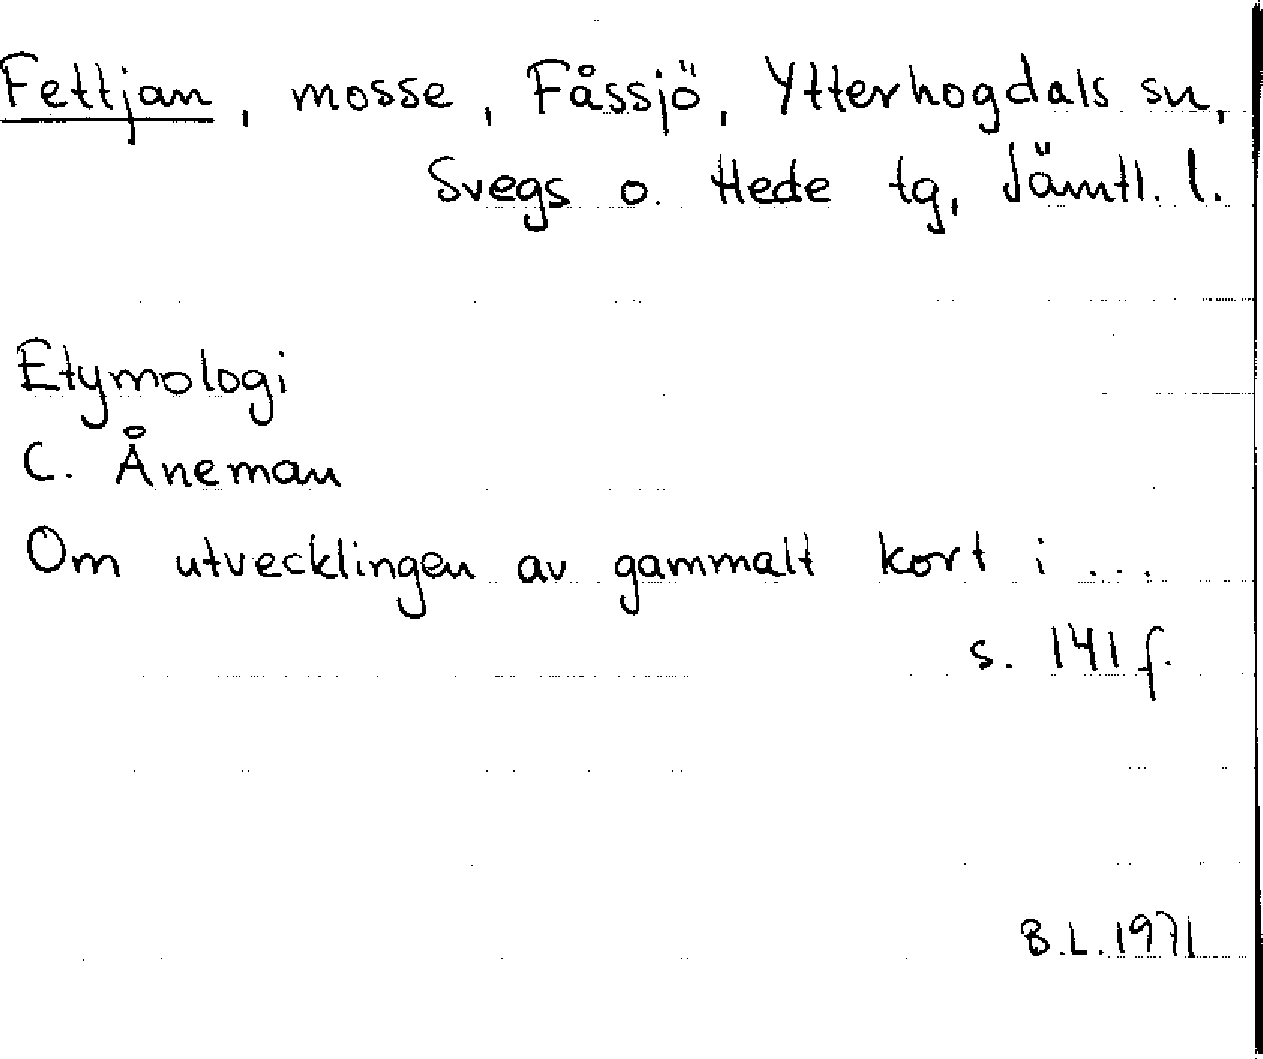 Fettjan, mosse, Fåssjö, Ytterhogdals sn,
Svegs o. Hede tg, Jämtl. l.
Etymologi
C. Åneman
Om utvecklingen av gammalt kort i ...
s. 141 f.
B.L. 1971